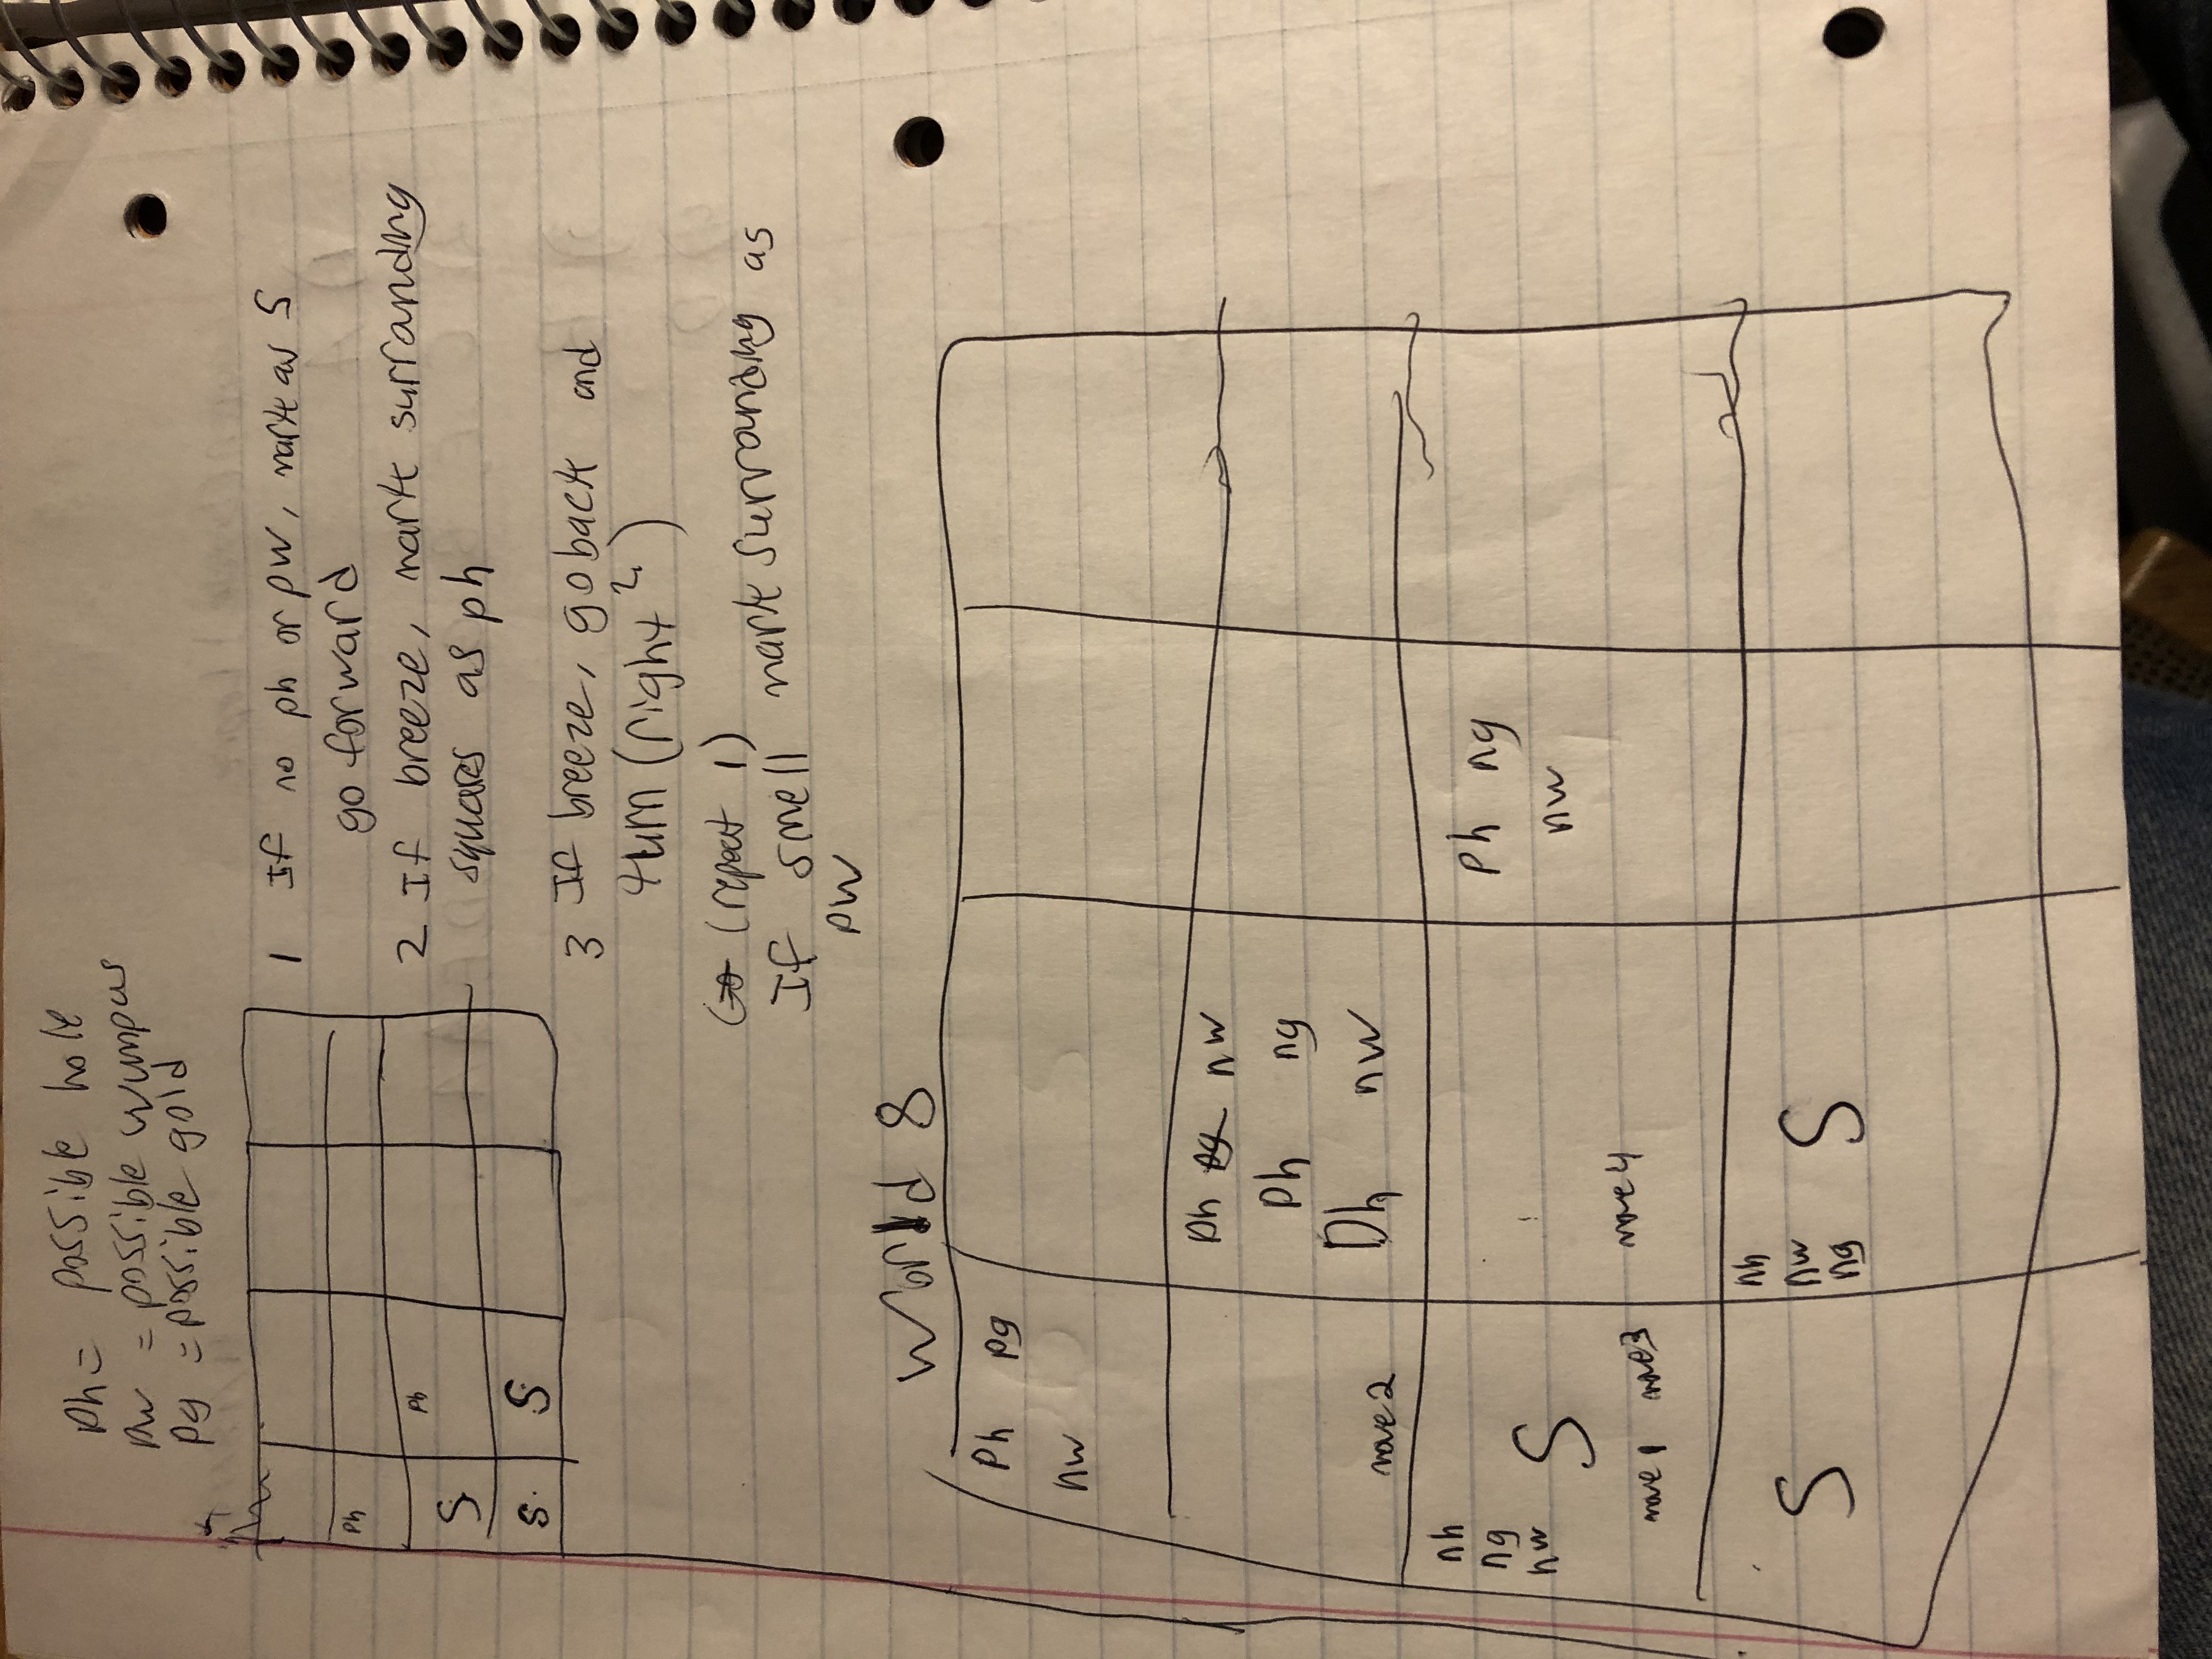 Ph = possible hole
pw = possible wumpus
pg = possible gold
Ph
Ph
S
S
S
1 If no ph or pw, mark as S
go forward
2 If breeze, mark surranding
squares as ph
3 If breeze, go back and
turn (right ?)
Go (repeat 1)
If smell mark surrounding as
pw
World 8
Ph pg
nw
Ph pg nw
Ph ng
Ph nw
move 2
nh
ng
nw
S
move 1 move 3
move 4
Ph ng
nw
S
nh
nw
ng
S